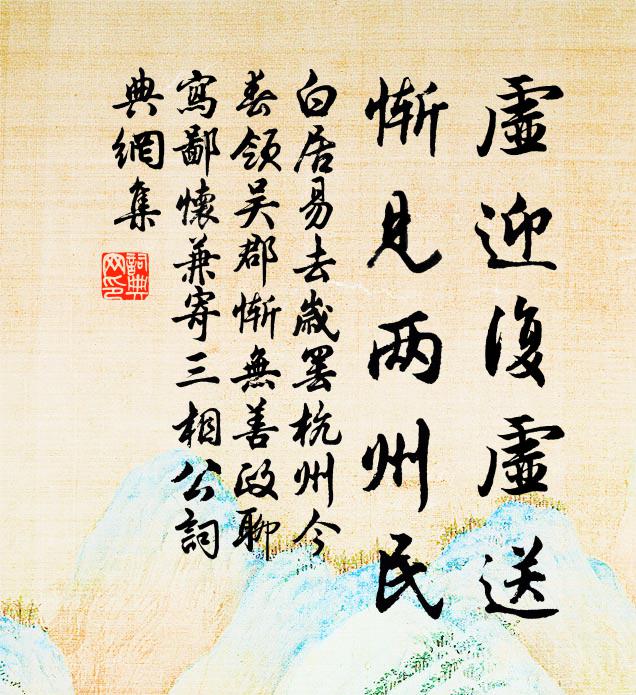 虛迎復虛送
慚見兩州民
白居易去歲罷杭州今
春領吴郡慚無善政聊
寫鄙懷兼寄三相公詞
典網集
詞典
网印